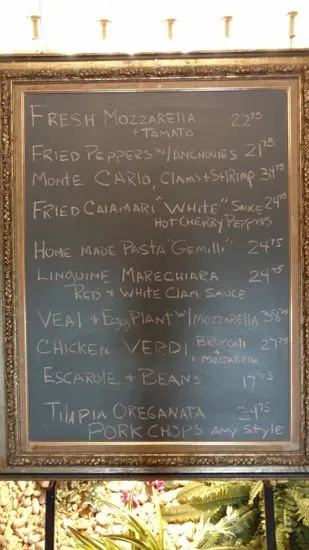 FRESH MOZZARELLA 22⁷⁵
& TOMATO
FRIED PEPPERS W/ ANCHOVIES 21⁷⁵
MONTE CARLO, CLAMS & SHRIMP 34⁷⁵
FRIED CALAMARI "WHITE" SAUCE 24⁷⁵
HOT CHERRY PEPPERS
HOME MADE PASTA "GEMILLI" 24⁷⁵
LINQUINE MARECHIARA 24⁷⁵
RED & WHITE CLAM SAUCE
VEAL & EggPLANT W/ MOZZARELLA 38⁷⁵
CHICKEN VERDI BROCCOLI & MOZZARELLA 27⁷⁵
ESCAROLE & BEANS 17⁷⁵
TILAPIA OREGANATA 24⁷⁵
PORK CHOPS ANY STYLE